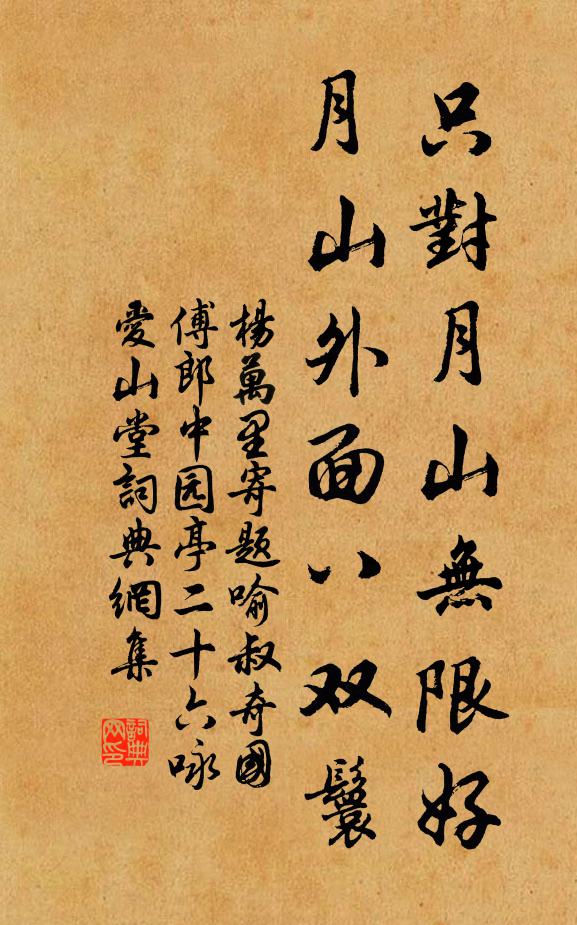 只對月山無限好
月山外面八双鬟
楊萬里寄题喻叔奇國
傅郎中园亭二十六咏
愛山堂詞典網集
詞典网印